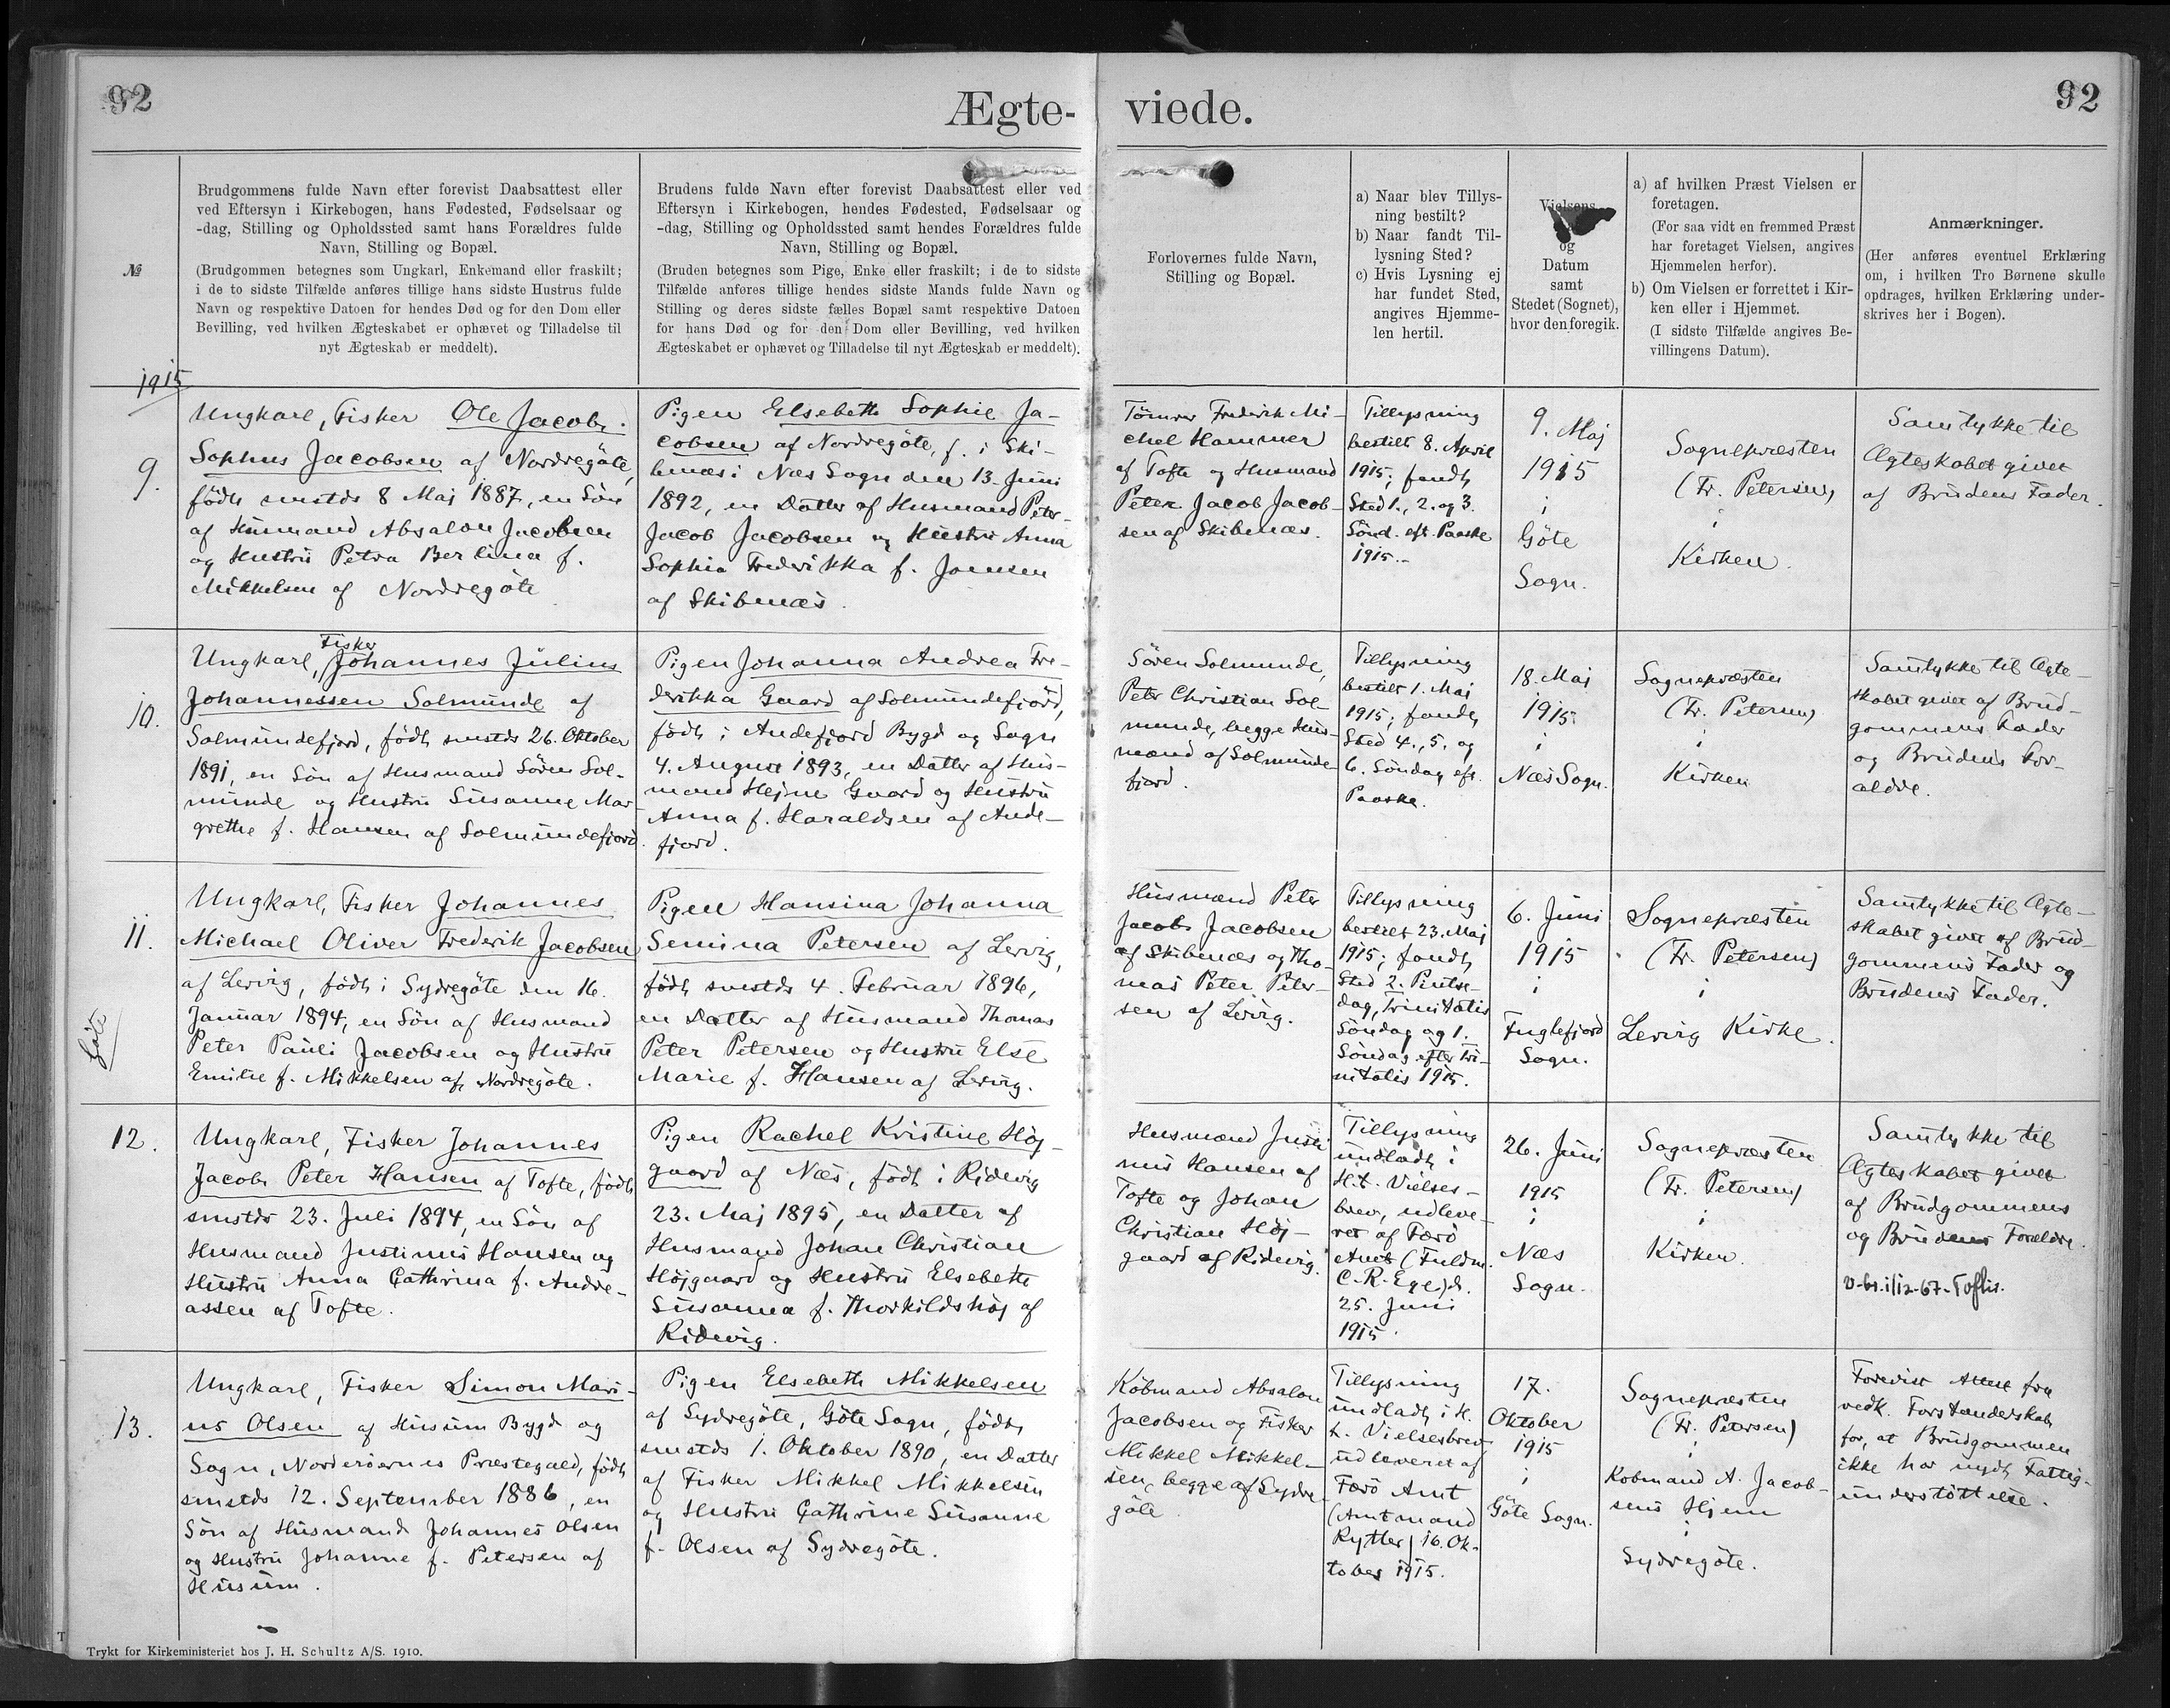 92
Ægte-
viede.
92
№
Brudgommens fulde Navn efter forevist Daabsattest eller
ved Eftersyn i Kirkebogen, hans Fødested, Fødselsaar og
-dag, Stilling og Opholdssted samt hans Forældres fulde
Navn, Stilling og Bopæl.
(Brudgommen betegnes som Ungkarl, Enkemand eller fraskilt;
i de to sidste Tilfælde anføres tillige hans sidste Hustrus fulde
Navn og respektive Datoen for hendes Død og for den Dom eller
Bevilling, ved hvilken Ægteskabet er ophævet og Tilladelse til
nyt Ægteskab er meddelt).
Brudens fulde Navn efter forevist Daabsattest eller ved
Eftersyn i Kirkebogen, hendes Fødested, Fødselsaar og
-dag, Stilling og Opholdssted samt hendes Forældres fulde
Navn, Stilling og Bopæl.
(Bruden betegnes som Pige, Enke eller fraskilt; i de to sidste
Tilfælde anføres tillige hendes sidste Mands fulde Navn og
Stilling og deres sidste fælles Bopæl samt respektive Datoen
for hans Død og for den Dom eller Bevilling, ved hvilken
Ægteskabet er ophævet og Tilladelse til nyt Ægteskab er meddelt).
Forlovernes fulde Navn,
Stilling og Bopæl.
a) Naar blev Tillys-
ning bestilt?
b) Naar fandt Til-
lysning Sted?
c) Hvis Lysning ej
har fundet Sted,
angives Hjemme-
len hertil.
Vielsens
og
Datum
samt
Stedet (Sognet),
hvor den foregik.
a) af hvilken Præst Vielsen er
foretagen.
(For saa vidt en fremmed Præst
har foretaget Vielsen, angives
Hjemmelen herfor).
b) Om Vielsen er forrettet i Kir-
ken eller i Hjemmet.
(I sidste Tilfælde angives Be-
villingens Datum).
Anmærkninger.
(Her anføres eventuel Erklæring
om, i hvilken Tro Børnene skulle
opdrages, hvilken Erklæring under-
skrives her i Bogen).
1915
9.
Ungkarl, Fisker Ole Jacob
Sophus Jacobsen af Nordregöte,
födt smstds 8 Maj 1887, en Sön
af Husmand Absalon Jacobsen
og Hustru Petra Berlina f.
Mikkelsen af Nordregöte
Pigen Elsebeth Sophie Ja-
cobsen af Nordregöte, f. i Ski-
benæs i Næs Sogn den 13. Juni
1892, en Datter af Husmand Peter
Jacob Jacobsen og Hustru Anna
Sophia Frederikka f. Joensen
af Skibenæs.
Tömrer Frederik Mi-
chel Hammer
af Tofte og Husmand
Peter Jacob Jacob-
sen af Skibenæs.
Tillysning
bestilt 8. April
1915; fandt
Sted 1., 2. og 3.
Sönd. eft. Paaske
1915.-
9. Maj
1915
i
Göte
Sogn.
Sognepræsten
(Fr. Petersen)
i
Kirken.
Samtykke til
Ægteskabet givet
af Brudens Fader.
10.
Fisker
Ungkarl, Johannes Julius
Johannessen Solmunde af
Solmundefjord, födt smstds 26. Oktober
1891, en Sön af Husmand Sören Sol-
munde og Hustru Susanne Mar-
grethe f. Hansen af Solmundefjord.
Pigen Johanna Andrea Fre-
derikka Gaard af Solmundefjord,
födt i Andefjord Bygd og Sogn
4. August 1893, en Datter af Hus-
mand Hejne Gaard og Hustru
Anna f. Haraldsen af Ande-
fjord.
Sören Solmunde,
Peter Christian Sol-
munde, begge Hus-
mænd af Solmunde-
fjord.
Tillysning
bestilt 1. Maj
1915; fandt
Sted 4., 5. og
6. Söndag eft.
Paaske.
18. Maj
1915
i
Næs Sogn.
Sognepræsten
(Fr. Petersen)
i
Kirken
Samtykke til Ægte-
skabet givet af Brud-
gommens Fader
og Brudens For-
ældre.
11.
Göte
Ungkarl, Fisker Johannes
Michael Oliver Frederik Jacobsen
af Lervig, födt i Sydregöte den 16.
Januar 1894, en Sön af Husmand
Peter Pauli Jacobsen og Hustru
Emilie f. Mikkelsen af Nordregöte.
Pigen Hansina Johanna
Semina Petersen af Lervig,
födt smstds 4. Februar 1896,
en Datter af Husmand Thomas
Peter Petersen og Hustru Else
Marie f. Hansen af Lervig.
Husmænd Peter
Jacob Jacobsen
af Skibenæs og Tho-
mas Peter Peter-
sen af Lervig.
Tillysning
bestilt 23. Maj
1915; fandt
Sted 2. Pintse-
dag, Trinitatis
Söndag og 1.
Söndag efter Tri-
nitatis 1915.
6. Juni
1915
i
Fuglefjord
Sogn.
Sognepræsten
(Fr. Petersen)
i
Lervig Kirke.
Samtykke til Ægte-
skabet givet af Brud-
gommens Fader og
Brudens Fader.
12.
Ungkarl, Fisker Johannes
Jacob Peter Hansen af Tofte, födt
smstds 23. Juli 1894, en Sön af
Husmand Justinus Hansen og
Hustru Anna Cathrina f. Andre-
assen af Tofte.
Pigen Rachel Kristine Höj-
gaard af Næs, födt i Ridevig
23. Maj 1895, en Datter af
Husmand Johan Christian
Höjgaard og Hustru Elsebeth
Susanna f. Thorkildshöj af
Ridevig.
Husmænd Justi-
nus Hansen af
Tofte og Johan
Christian Höj-
gaard af Ridevig.
Tillysning
undladt i
H.t. Vielses-
brev, udleve-
ret af Færö
Amt (Fuldm.
C. R. Ege) d.
25. Juni
1915.
26. Juni
1915
i
Næs
Sogn.
Sognepræsten
(Fr. Petersen)
i
Kirken.
Samtykke til
Ægteskabet givet
af Brudgommens
og Brudens Forældre.
1/12-67-
13.
Ungkarl, Fisker Simon Mari-
us Olsen af Husum Bygd og
Sogn, Norderöernes Præstegæld, födt
smstds 12. September 1886, en
Sön af Husmand Johannes Olsen
og Hustru Johanne f. Petersen af
Husum.
Pigen Elsebeth Mikkelsen
af Sydregöte, Göte Sogn, födt
smstds 1. Oktober 1890, en Datter
af Fisker Mikkel Mikkelsen
og Hustru Cathrine Susanne
f. Olsen af Sydregöte.
Köbmand Absalon
Jacobsen og Fisker
Mikkel Mikkel-
sen, begge af Sydre-
göte
Tillysning
undladt i H.
t. Vielsesbrev
udleveret af
Færö Amt
(Amtmand
Rytter) 16. Ok-
tober 1915.
17.
Oktober
1915
i
Göte Sogn.
Sognepræsten
(Fr. Petersen)
i
Köbmand A. Jacob-
sens Hjem
i
Sydregöte.
Forevist Attest fra
vedk. Forstanderskab
for, at Brudgommen
ikke har nydt Fattig-
understöttelse.
Trykt for Kirkeministeriet hos J. H. Schultz A/S. 1910.